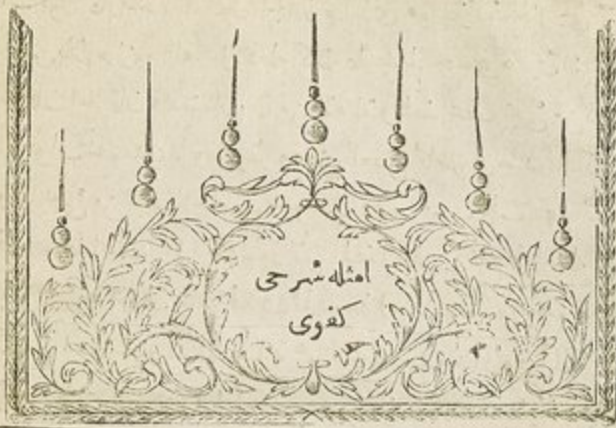 امثله شرحی
كفوی